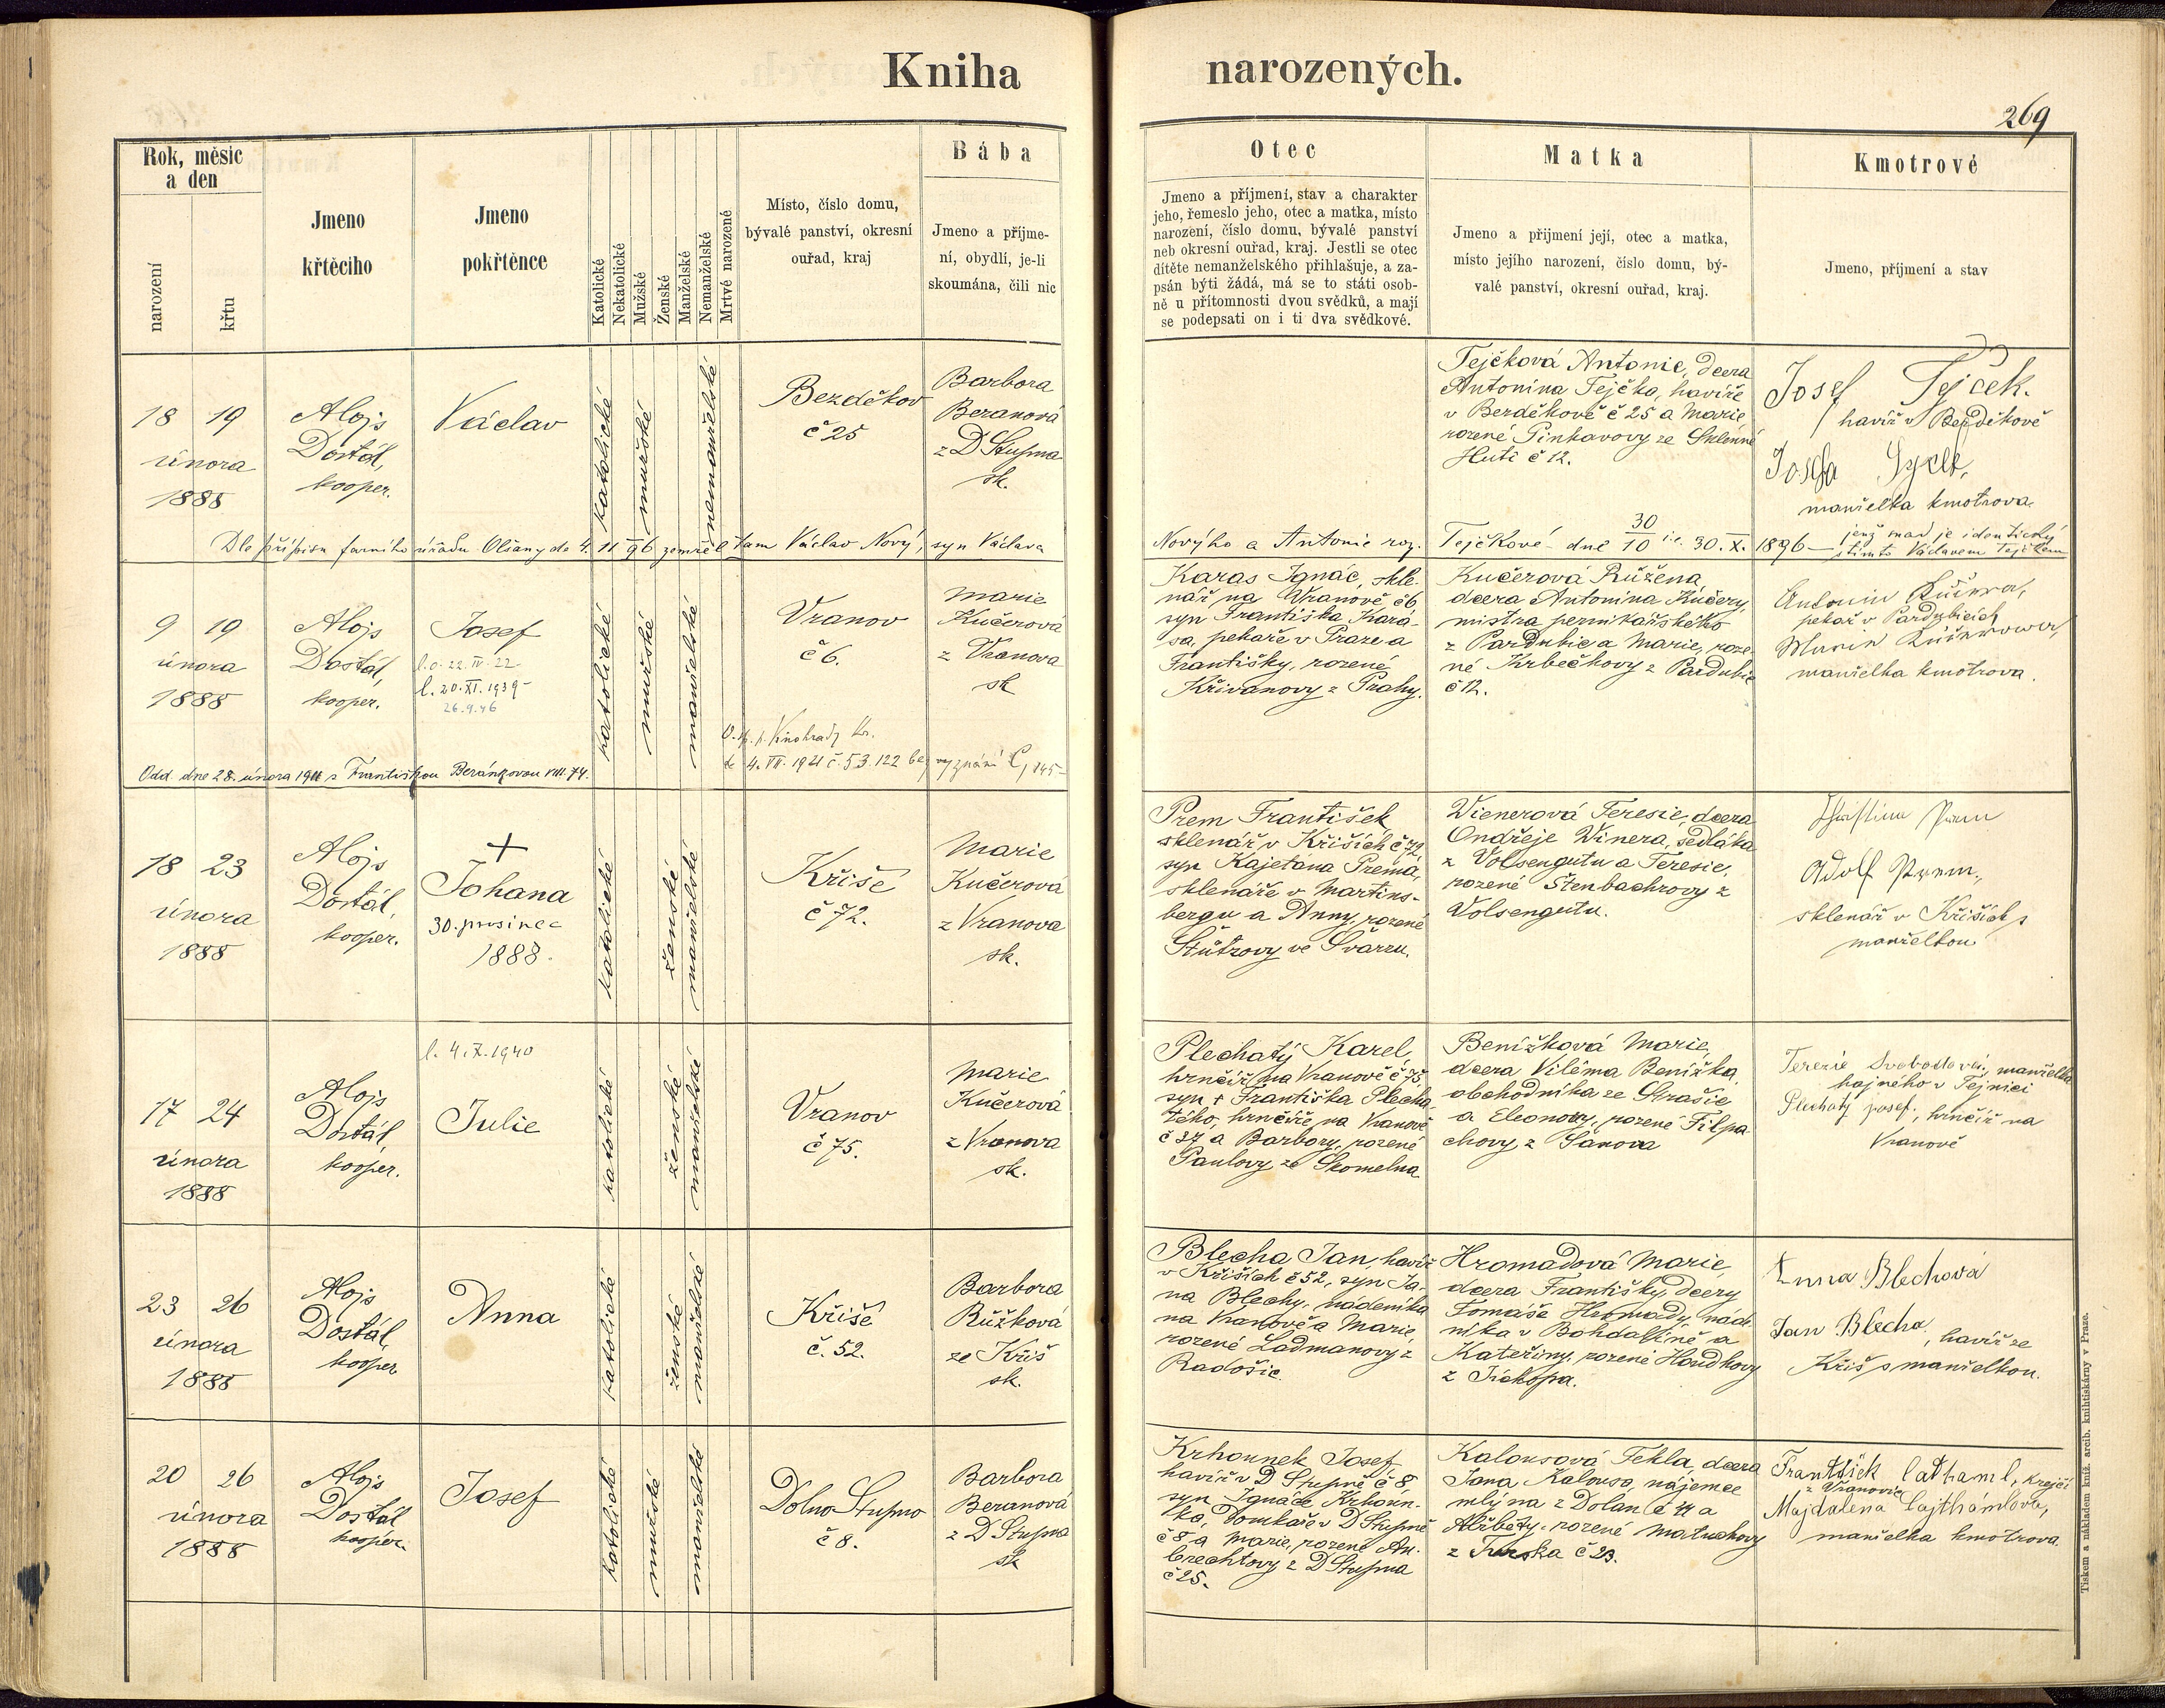 Kniha narozených.
269
Rok, měsíc
a den
narození
křtu
Jmeno
křtěcího
Jmeno
pokřtěnce
Katolické
Nekatolické
Mužské
Ženské
Manželské
Nemanželské
Mrtvé narozené
Místo, číslo domu,
bývalé panství, okresní
ouřad, kraj
Bába
Jmeno a příjme-
ní, obydlí, je-li
skoumána, čili nic
Otec
Jmeno a příjmení, stav a charakter
jeho, řemeslo jeho, otec a matka, místo
narození, číslo domu, bývalé panství
neb okresní ouřad, kraj. Jestli se otec
dítěte nemanželského přihlašuje, a za-
psán býti žádá, má se to státi osob-
ně u přítomnosti dvou svědků, a mají
se podepsati on i ti dva svědkové.
Matka
Jmeno a přijmení její, otec a matka,
místo jejího narození, číslo domu, bý-
valé panství, okresní ouřad, kraj.
Kmotrové
Jmeno, příjmení a stav
18 19
února
1888
Alojs
Dostál,
kooper.
Václav
katolické
mužské
nemanželské
Bezděkov
č 25
Barbora
Beranová
z D Stupna
sk.
Tejčková Antonie, dcera
Antonína Tejčka, havíře
v Bezděkově č 25 a Marie
rozené Pinkavovy ze Sklenné
Huti č 12.
Josef Tejček.
havíř v Bezděkově
Josefa
manželka kmotrova.
Dle přípisu farního úřadu Olšany de 4. 11 96 zemřel tam Václav Nový, syn Václava
Nového a Antonie roz. Tejčkové dne 30/10 i.e. 30. X. 1896 — jenž snad je identický
s tímto Václavem Tejčkem
9 19
února
1888
Alojs
Dostál,
kooper.
Josef
l.o. 22. IV. 22
l. 20. XI. 1939
26.9.46
katolické
mužské
manželské
Vranov
č 6.
Marie
Kučerová
z Vranova
sk
Karas Ignác, skle-
nář na Vranově č 6,
syn Františka Kara-
sa, pekaře v Praze a
Františky, rozené
Křivanovy z Prahy.
Kučerová Růžena,
dcera Antonína Kučery,
mistra perníkářského
z Pardubic a Marie, roze-
né Krbečkovy z Pardubic
č 12.
Antonín Kučera,
pekař v Pardubicích
Marie
manželka kmotrova.
Vinohrady
4. VII. 1921 č. 53.122 bez vyznání
Odd. dne 28. února 1911 s Františkou Beránkovou VIII. 74.
18 23
února
1888
Alojs
Dostál,
kooper.
+
Johana
30. prosince
1888.
katolické
ženské
manželské
Kříše
č 72.
Marie
Kučerová
z Vranova
sk.
Prem František
sklenář v Kříších č 72,
syn Kajetána Prema,
sklenáře v Martins-
bergu a Anny, rozené
Štützovy ve Švarzu.
Wienerová Teresie, dcera
Ondřeje Winera, sedláka
z Volsengutu a Teresie,
rozené Štenbachrovy z
Volsengutu.
Prem
Adolf Prem,
sklenář v Kříších s
manželkou
17 24
února
1888
Alojs
Dostál,
kooper.
l. 4. X. 1940
Julie
katolické
ženské
manželské
Vranov
č 75.
Marie
Kučerová
z Vranova
sk.
Plechatý Karel,
hrnčíř na Vranově č 75,
syn + Františka Plecha-
tého, hrnčíře na Vranově
č 34 a Barbory, rozené
Paulovy ze Skomelna
Benížková Marie,
dcera Viléma Benížka,
obchodníka ze Strašic
a Eleonory, rozené Filpa-
chovy z Šanova
Terezie Svobodová, manželka
hajného v Tejnici
Plechatý josef, hrnčíř na
Vranově
23 26
února
1888
Alojs
Dostál,
kooper
Anna
katolické
ženské
manželské
Kříše
č. 52.
Barbora
Růžková
ze Kříš
sk.
Blecha Jan, havíř
v Kříších č 52, syn Ja-
na Blechy, nádeníka
na Vranově a Marie,
rozené Ladmanovy z
Radošic.
Hromadová Marie,
dcera Františky, dcery
Tomáše Hromady, nád-
níka v Bohdalíně a
Kateřiny, rozené Houdkovy
z Trhkopa.
Anna Blechová
Jan Blecha, havíř ze
Kříš s manželkou.
20 26
února
1888
Alojs
Dostál
kooper.
Josef
katolické
mužské
manželské
Dolno Stupno
č 8.
Barbora
Beranová
z D Stupna
sk
Krhounek Josef
havíř v D Stupně č 8
syn Ignáce Krhoun-
ka, Domkáře v D Stupně
č 8 a Marie, rozené Au-
brechtovy z D Stupna
č 25.
Kalousová Tekla, dcera
Jana Kalousa, nájemce
mlýna z Dolan č 4 a
Alžběty, rozené Matuchovy
z Turska č 23.
František, krejčí
z Vranovic
Majdalena Lajthámlova,
manželka kmotrova.
Tiskem a nákladem kníž. arcib. knihtiskárny v Praze.